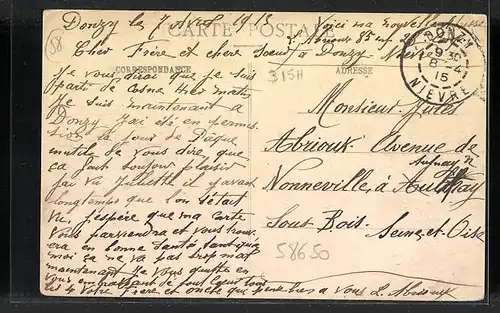 Donzy le 7 Avril 1915
CARTE POSTALE
Voici ma nouvelle adresse
58
Cher Frère et chere Soeur
à Donzy Nièvre
CORRESPONDANCE
ADRESSE
315H
DONZY
9 30
8 - 4
15
NIEVRE
Je vous dirai que je suis
parti de Cosne Hier matin
Je suis maintenant a
Donzy J'ai été en permis
sion le Jour de Pâque
inutil de vous dire, que
ça fait toujour plaisir
j'ai vu Juliette il y avait
longtemps que l'on s'était
vu, j'espère que ma carte
vous parviendra et vous trouv
era en bonne santé, tant que
moi ça ne va pas trop mal
maintenant Je vous quitte en
vous embrassant de tout Coeur tous
les 4 Votre Frere et oncle que pense bien a vous L. Abrioux
Monsieur Jules
Abrioux Avenue de
Nonneville, à Aulnay
Sous-Bois.
Seine-et-Oise
58650